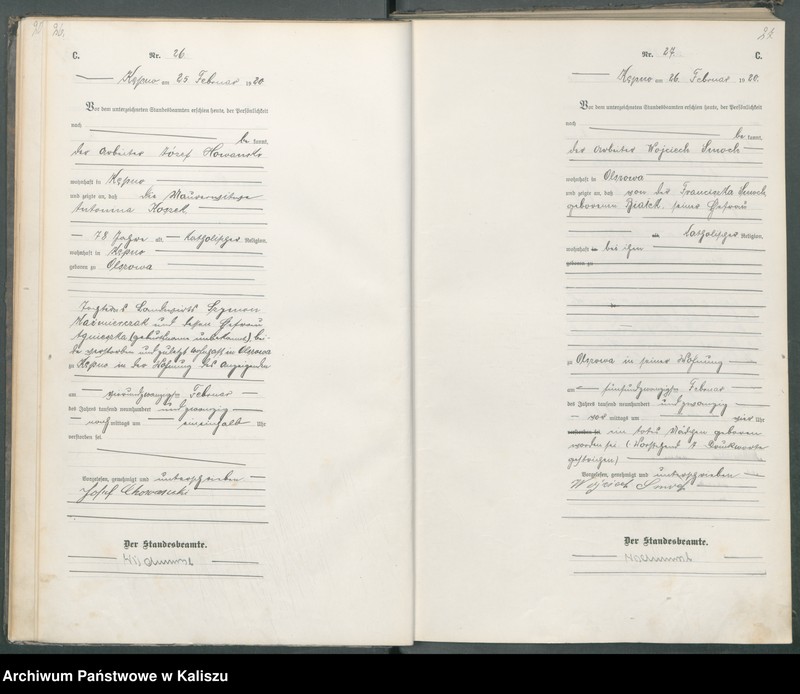 26.
C.
Nr. 26
Kępno am 25 Februar 1920.
Vor dem unterzeichneten Standesbeamten erschien heute, der Persönlichkeit
nach
be kannt,
der Arbeiter Józef
wohnhaft in Kępno
und zeigte an, daß die
Antonina
78 Jahre alt katholischer Religion,
wohnhaft in Kępno
geboren zu Olszowa
Tochter des Landwirts Szymon
Kaźmierczak und dessen Ehefrau
Agnieszka (geburtsname unbekannt) bei-
de verstorben und zuletzt wohnhaft in Olszowa
zu Kępno in der Wohnung des Anzeigenden
am vierundzwanzigsten Februar
des Jahres tausend neunhundert und zwanzig
nach mittags um eineinhalb Uhr
verstorben sei.
Vorgelesen, genehmigt und unterschrieben
Józef
Der Standesbeamte.
27.
Nr. 27
C.
Kępno am 26 Februar 1920.
Vor dem unterzeichneten Standesbeamten erschien heute, der Persönlichkeit
nach
be kannt,
der Arbeiter Wojciech Smoch
wohnhaft in Olszowa
und zeigte an, daß von der Franciszka Smoch
geborenen seiner Ehefrau
alt katholischer Religion,
wohnhaft in bei ihm
geboren zu
zu Olszowa in seiner Wohnung
am fünfundzwanzigsten Februar
des Jahres tausend neunhundert und zwanzig
vor mittags um vier Uhr
verstorben sei ein totes Mädchen geboren
worden sei. (Vorstehend 4 Druckworte
gestrichen)
Vorgelesen, genehmigt und unterschrieben
Wojciech Smoch
Der Standesbeamte.
Archiwum Państwowe w Kaliszu